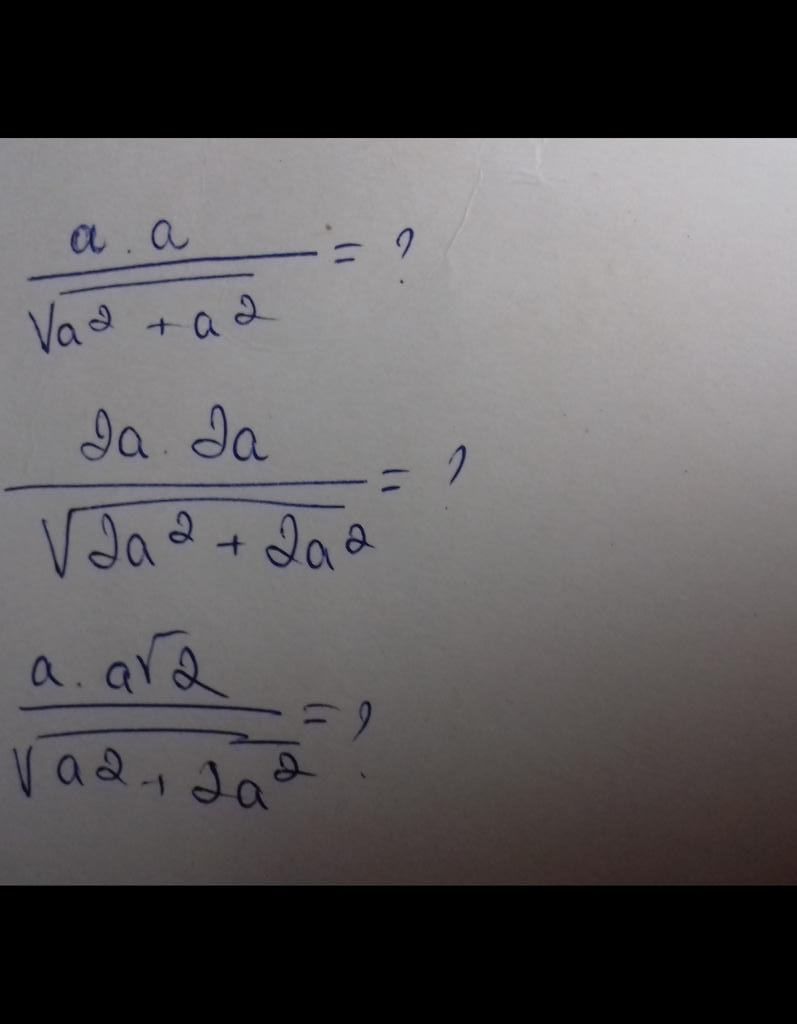 a . a
/ √a² + a² = ?
2a . 2a
/ √2a² + 2a² = ?
a . a√2
/ √a2 + 2a² = ?